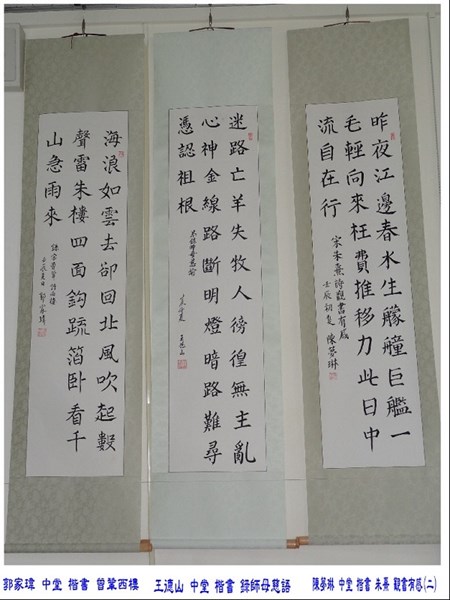 昨夜江邊春水生艨艟巨艦一
毛輕向來枉費推移力此日中
流自在行
宋朱熹詩觀書有感
壬辰初夏 陳夢琳
迷路亡羊失牧人徬徨無主亂
心神金線路斷明燈暗路難尋
憑認祖根
恭錄師母慈諭
海浪如雲去卻回北風吹起數
聲雷朱樓四面鈎疏箔臥看千
山急雨來
錄宋曾鞏詩西樓
壬辰夏日 郭家瑋
郭家瑋 中堂 楷書 曾鞏西樓
中堂 楷書 錄師母慈語
陳夢琳 中堂 楷書 朱熹 觀書有感(二)